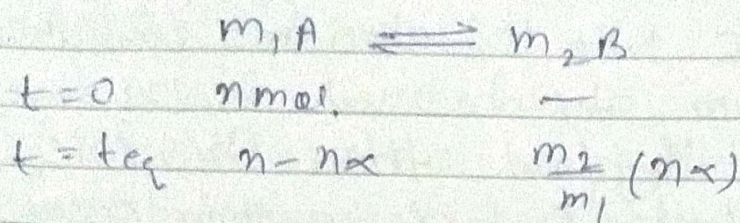 m₁A ⇌ m₂B
t=0 n mol. —
t=teq n-nα m₂/m₁ (nα)